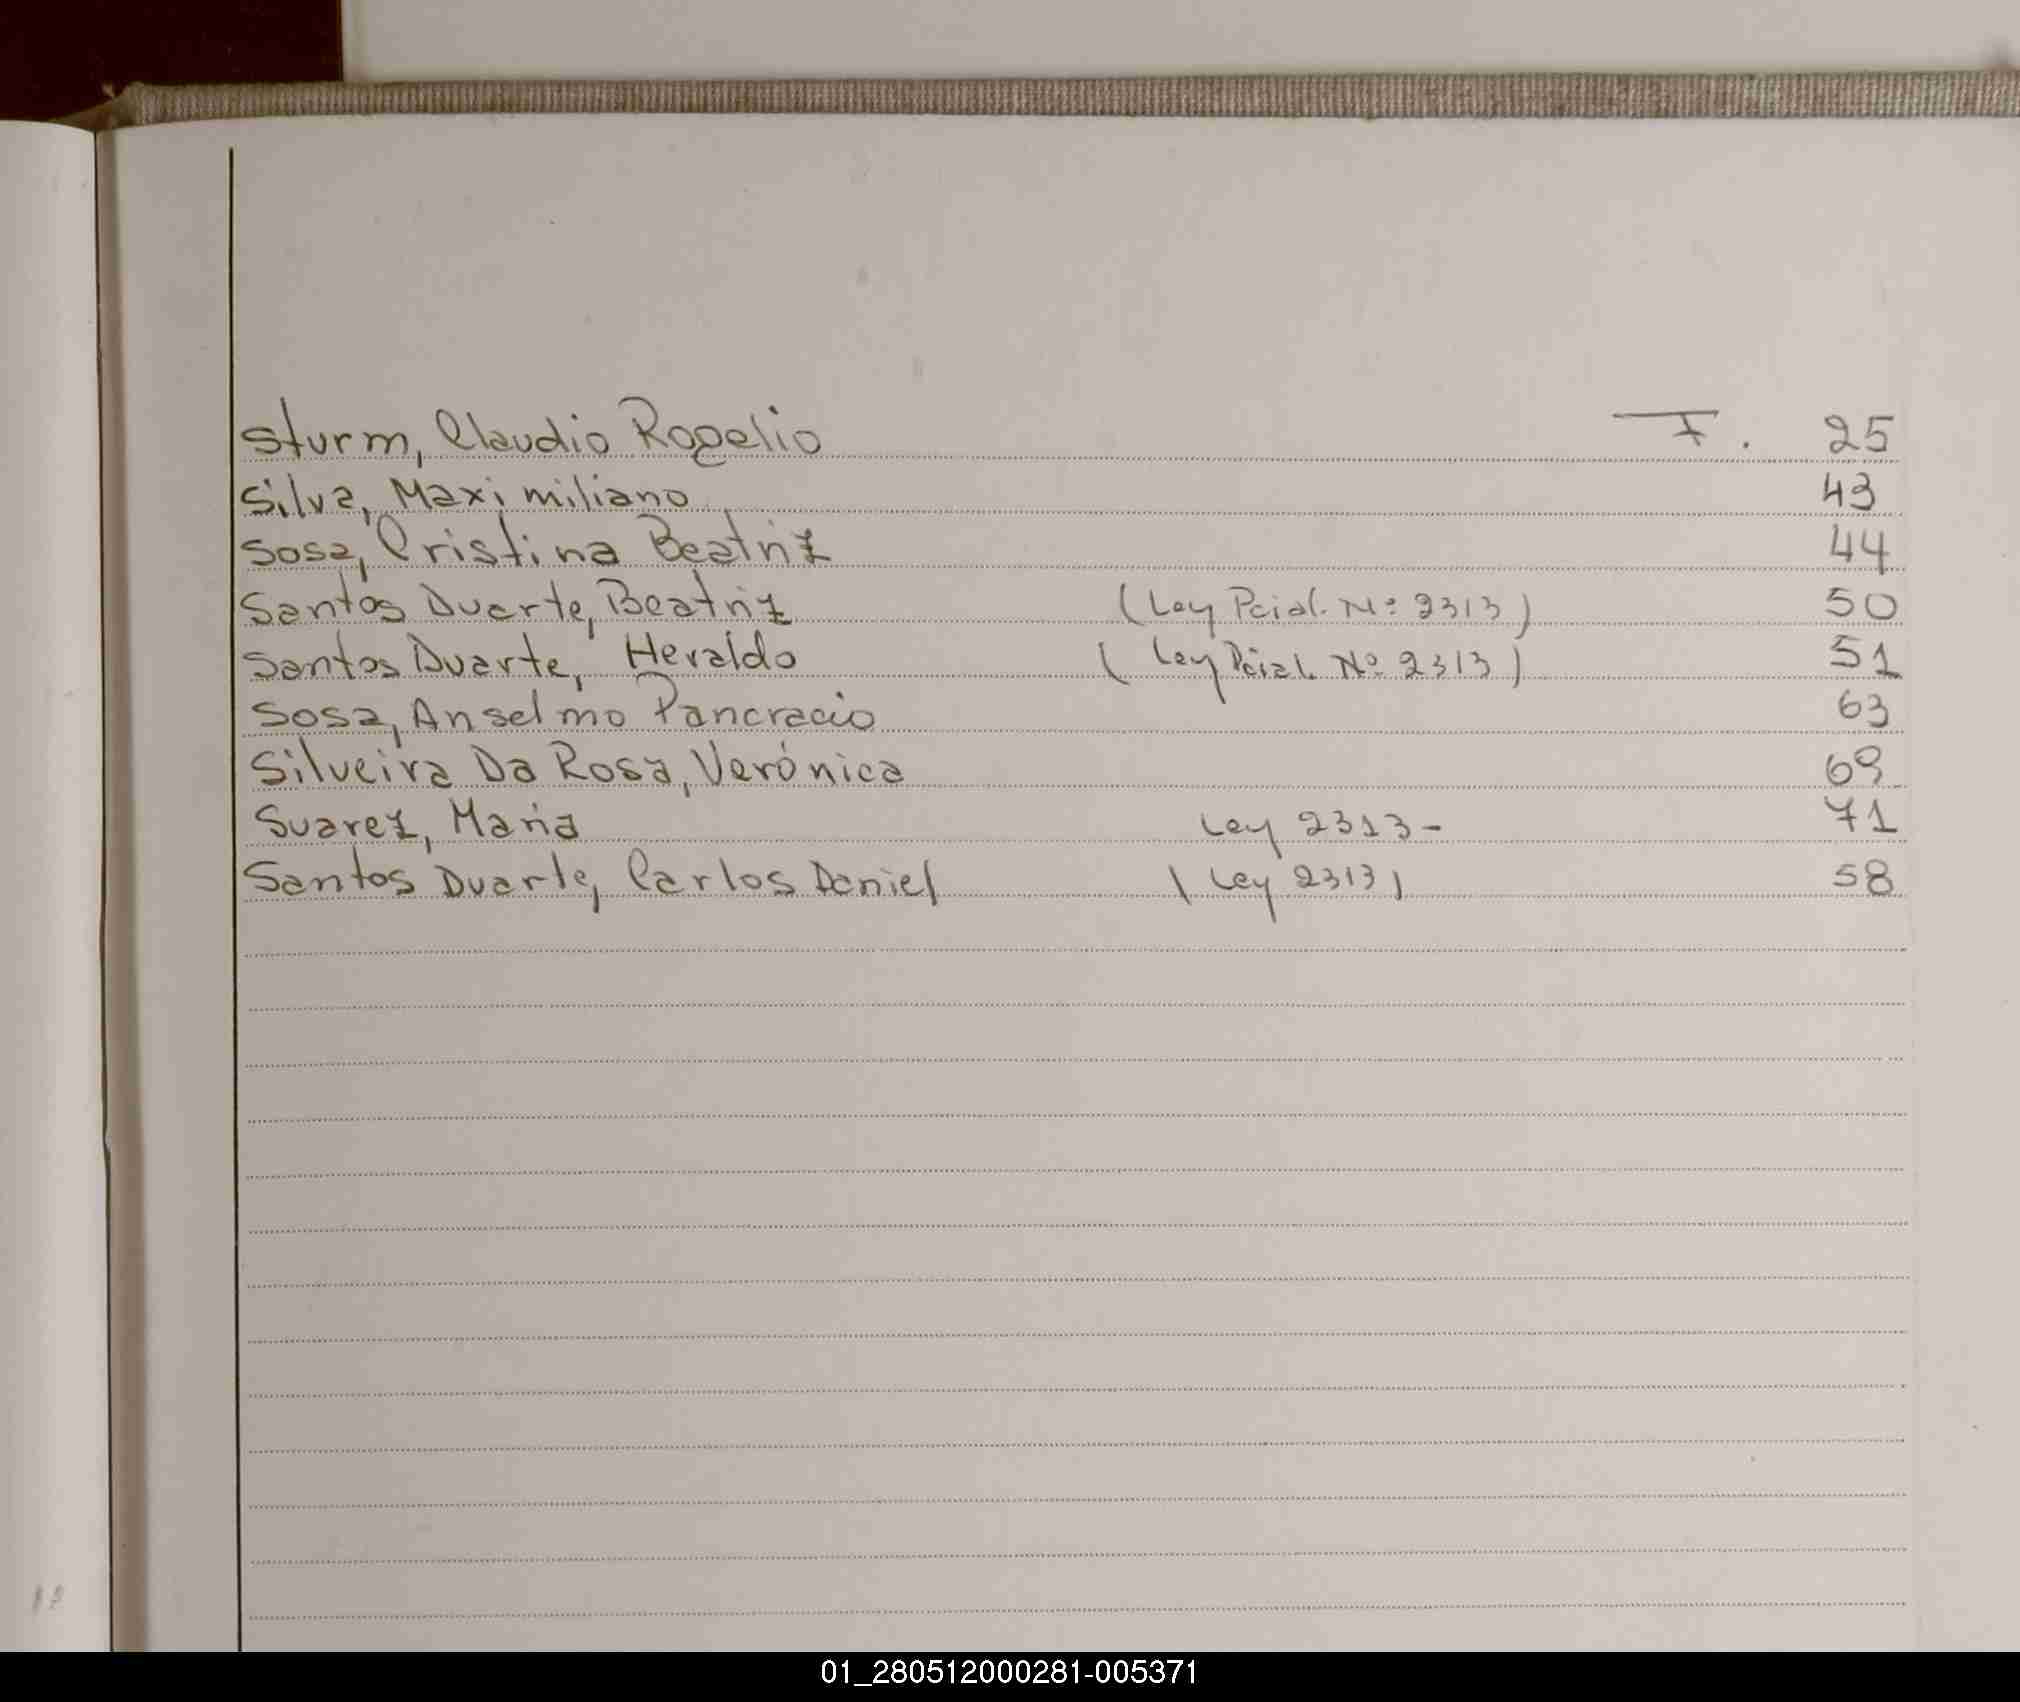 Sturm, Claudio Rogelio F. 25
Silva, Maximiliano 43
Sosa, Cristina Beatriz 44
Santos Duarte, Beatriz (Ley Pcial. Nº 2313) 50
Santos Duarte, Heraldo (Ley Pcial. Nº 2313) 51
Sosa, Anselmo Pancracio 63
Silveira Da Rosa, Verónica 69
Suarez, Maria Ley 2313- 71
Santos Duarte, Carlos Daniel (Ley 2313) 58
01_280512000281-005371